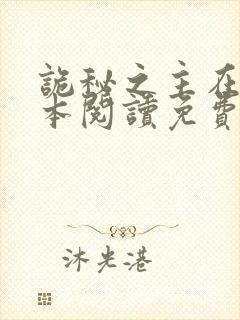 詭秘之主在
本閱讀免費
沐光港